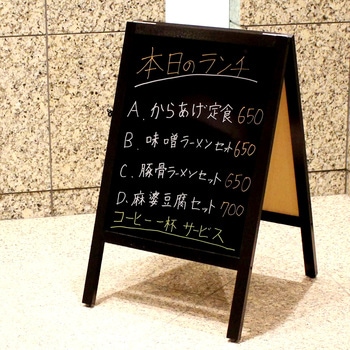 本日のランチ
A.からあげ定食 650
B.味噌ラーメンセット 650
C.豚骨ラーメンセット 650
D.麻婆豆腐セット 700
コーヒー一杯 サービス